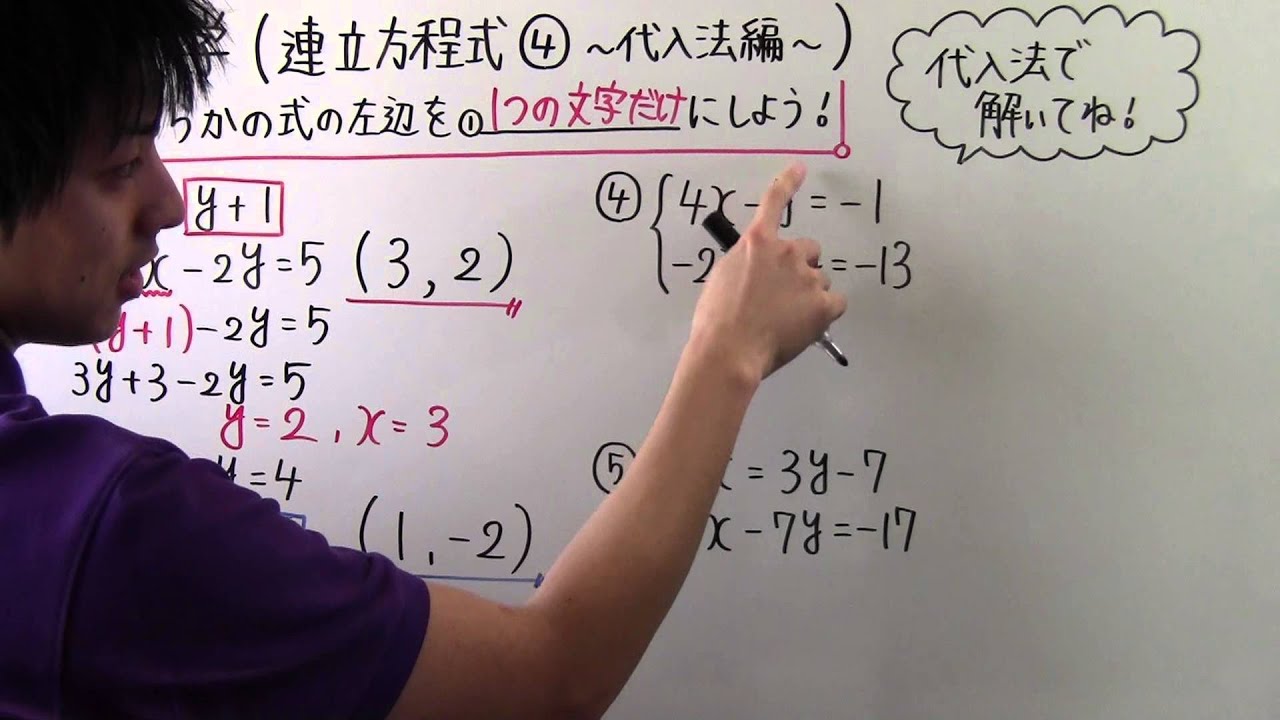 (連立方程式④～代入法編～)
らかの式の左辺を①1つの文字だけにしよう!
代入法で
解いてね!
y+1
x-2y=5 (3,2)
(y+1)-2y=5
3y+3-2y=5
y=2,x=3
y=4
(1,-2)
④ 4x-y=-1
-2 =-13
⑤ =3y-7
x-7y=-17